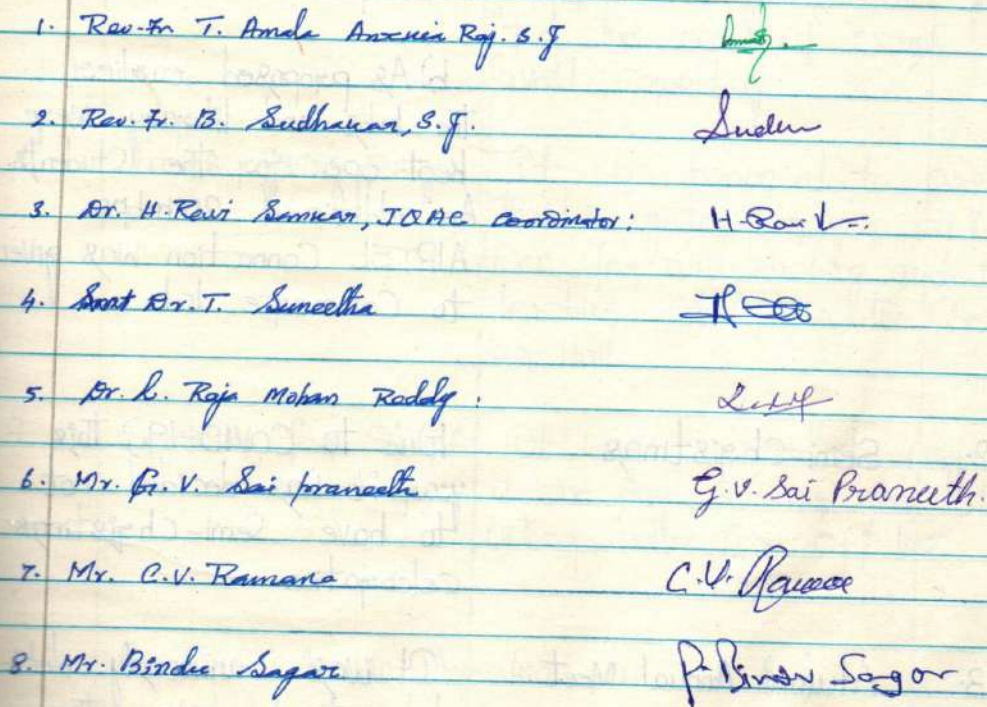 1. Rev. Fr T. Amala Raj. S.J
2. Rev. Fr. B. Sudhakar, S.J. Sudhu
3. Dr. H. Ravi Sankar, IQAC Coordinator: H. Ravi
4. Dr. T. Suneetha
5. Dr. L. Raja Mohan Reddy:
6. Mr. G. V. Sai praneeth G. V. Sai Praneeth.
7. Mr. C.V. Ramana C.V. Ramana
8. Mr. Bindu Sagar P. Bindu Sagar